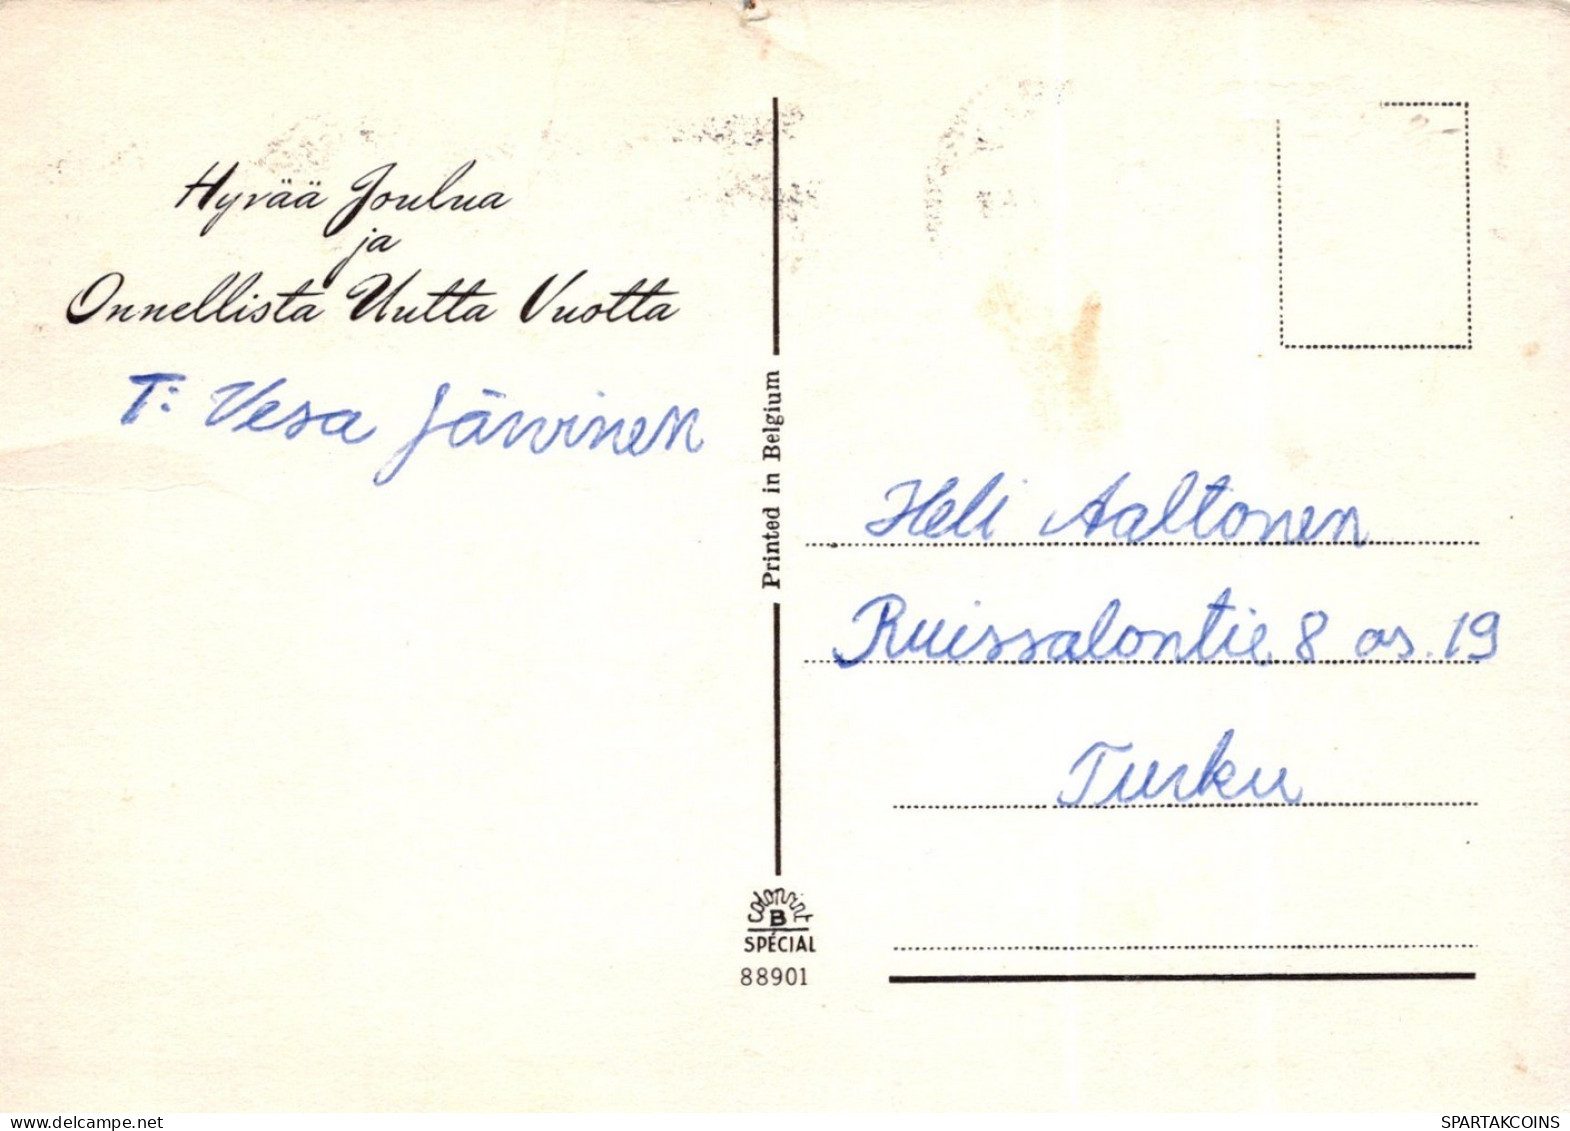 Hyvää Joulua
ja
Onnellista Uutta Vuotta
T: Vesa Järvinen
Printed in Belgium
Heli Aaltonen
Ruissalontie 8 as. 19
Turku
Colorprint
B
SPÉCIAL
88901
www.delcampe.net
SPARTAKCOINS